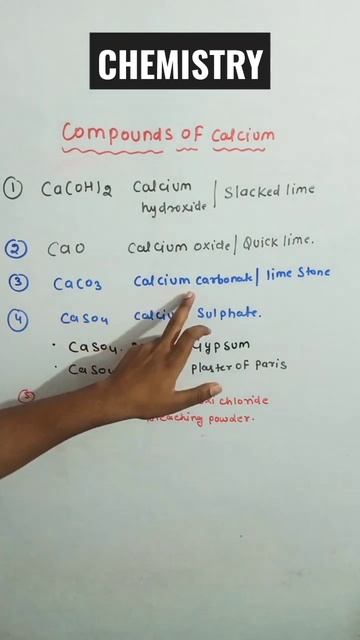 CHEMISTRY
Compounds of Calcium
① Ca(OH)2 Calcium hydroxide | Slacked lime
② CaO Calcium oxide | Quick lime.
③ CaCO3 Calcium carbonate | lime Stone
④ CaSO4 Calcium Sulphate.
• CaSO4. Gypsum
• CaSO4 Plaster of Paris
⑤ chloride
bleaching powder.